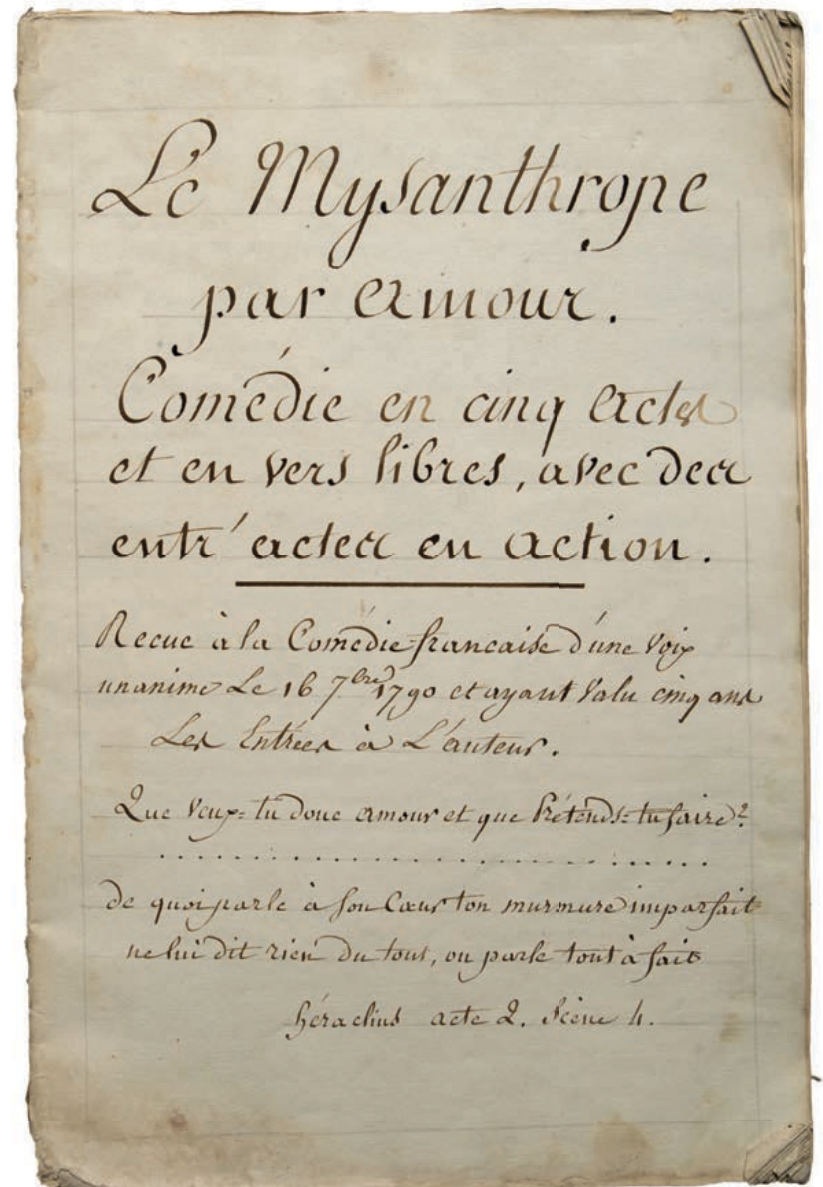 Le Mysanthrope
par amour.
Comédie en cinq actes
et en vers libres, avec des
entr'actes en action.
Recue à la Comédie francaise d'une voix
unanime Le 16 7bre 1790 et ayant valu cinq ans
Les Entrées à L'auteur.
Que veux-tu donc amour et que Prétends-tu faire?
de quoi parle à son Cœur ton murmure imparfait
ne lui dit rien du tout, ou parle tout à fait
héraclius acte 2. Scène 4.